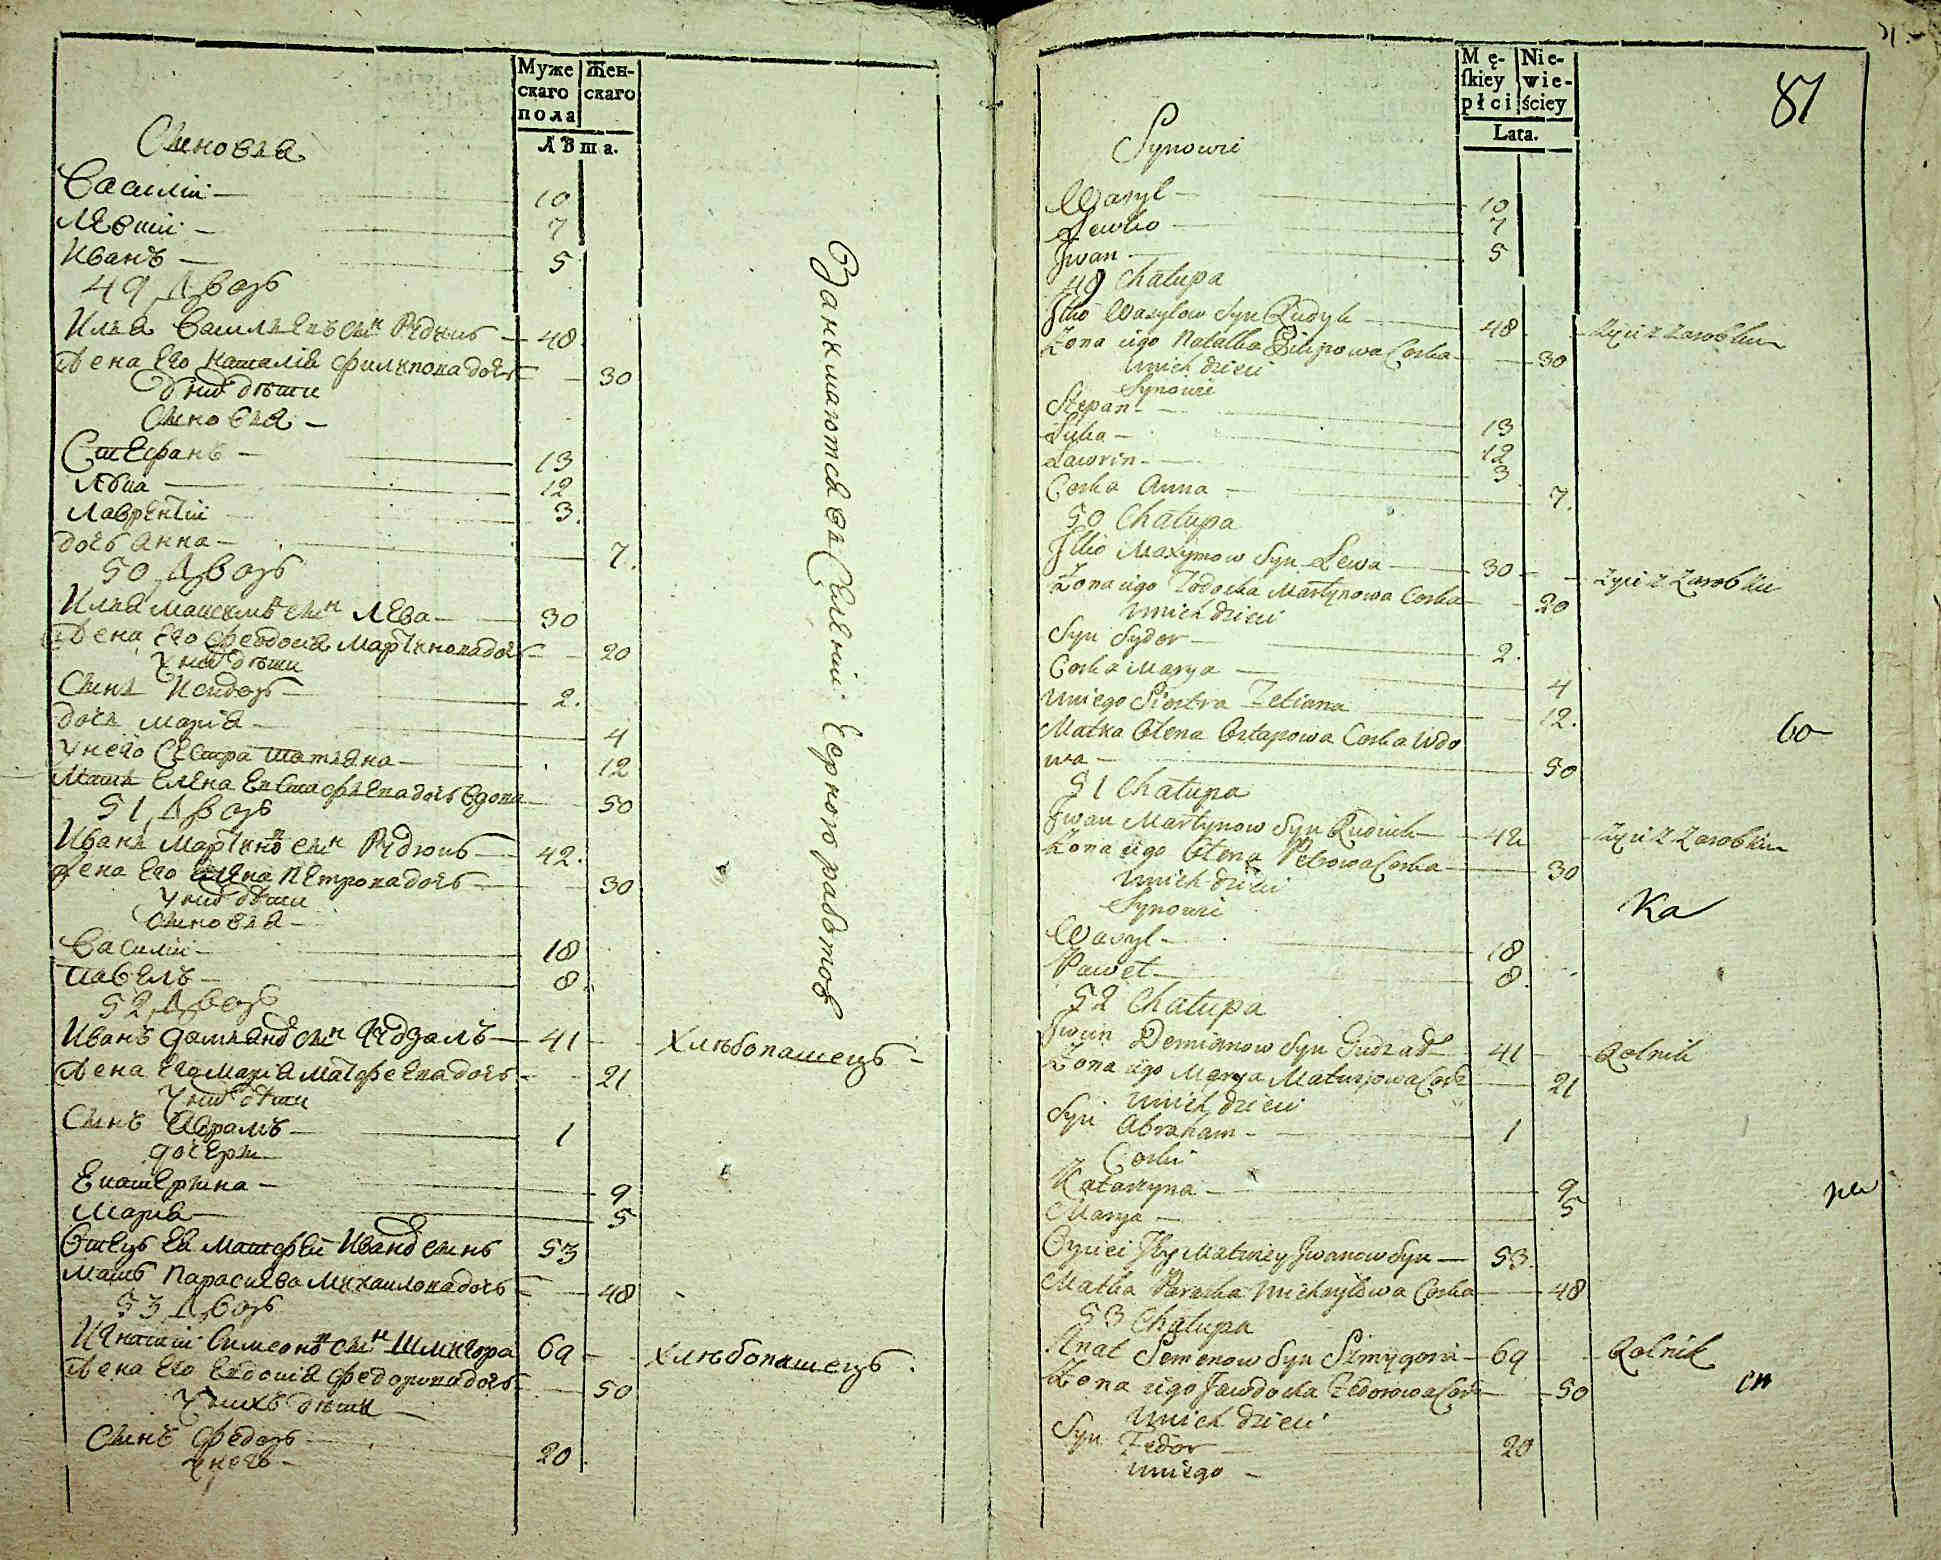 Муже
скаго
пола
Жен-
скаго
Лѣта.
Синовя
Василій
10
Левтій
7
Иванъ
5
49 Дворъ
Илья Васильевъ син Рудикъ
48
Жена его Наталія Филипова дочь
30
У них дѣти
Синовя
Стефанъ
13
Лука
12
Лаврентій
3.
дочь Анна
7.
50 Дворъ
Илья Максимов син Лева
30
Жена его Феодосія Мартинова дочь
20
У них дѣти
Синъ Исидоръ
2.
дочь Марія
4
У него Сестра Татіяна
12
Мать Елена Евстафіева дочь вдова
50
51 Дворъ
Иванъ Мартинов син Рудюкъ
42.
Жена его Елена Петрова дочь
30
У них дѣти
Синовя
Василій
18
Павелъ
8.
52 Дворъ
Иванъ Даміянов син Кудзалъ
41
Хлѣбопашецъ
Жена его Марія Матфеева дочь
21
У них дѣти
Синъ Аврамъ
1
дочери
Екатерина
9
Марія
5
Отецъ ея Матфей Иванов синъ
53
Мать Парасковія Михаилова дочь
48
53 Дворъ
Игнатій Симеонов син Шмигора
69
Хлѣбопашецъ.
Жена его Евдокія Федорова дочь
50
У нихъ дѣти
Синъ Федоръ
20
У него
Занимаются въ Селеніи черною работою
Mę-
ſkiey
płci
Nie-
wie-
ściey
Lata.
87
Synowie
Wasyl
10
Lewko
7
Jwan
5
49 Chałupa
Jlko Wasylow Syn Rudyk
48
Zyie z Zarobku
Zona iego Natalka Pilipowa Corka
30
U nich dzieci
Synowie
Stepan
13
Łuka
12
Lawrin
3
Corka Anna
7.
50 Chałupa
Jlko Maxymow Syn Lewa
30
Zyie z Zarobku
Zona iego Todoska Martynowa Corka
20
U nich dzieci
Syn Sydor
2.
Corka Marya
4
U niego Siostra Tetiana
12.
Matka Olena Ostapowa Corka Wdo
wa
50
51 Chałupa
Jwan Martynow Syn Rudiuk
42
Zyie z Zarobku
Zona iego Olena Petrowa Corka
30
U nich dzieci
Ka
Synowie
Wasyl
18
Paweł
8.
52 Chałupa
Jwan Demianow Syn Gudzał
41
Rolnik
Zona iego Marya Matwijowa Cork
21
U nich dzieci
Syn Abraham
1
Corki
Katarzyna
9
Marya
5
Oyciec Jey Matwiey Jwanow Syn
53.
Matka Paraska Michayłowa Corka
48
53 Chałupa
Jhnat Semenow Syn Szmygora
69
Rolnik
Zona iego Jawdocha Fedorowa Cork
50
U nich dzieci
Syn Fedor
20
U niego